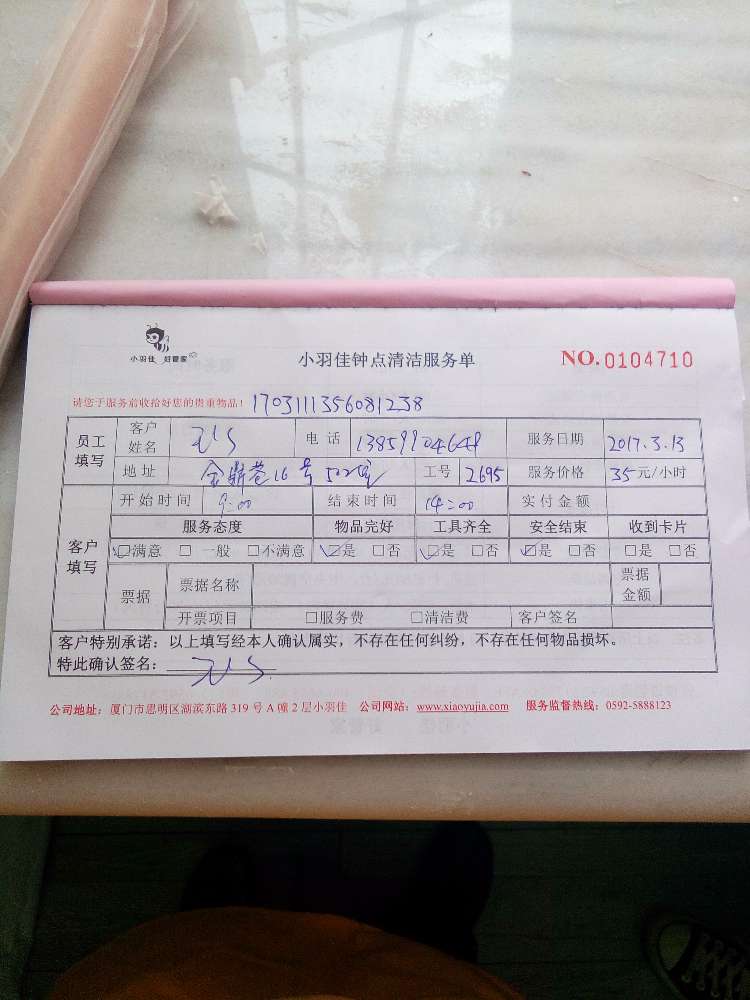 小羽佳 好管家
小羽佳钟点清洁服务单
NO.0104710
请您于服务前收拾好您的贵重物品! 1703111356081238
员工填写 客户姓名 电话 服务日期 2017.3.13
地址 金鼎巷16号502室 工号 2695 服务价格 35元/小时
客户填写 开始时间 9:00 结束时间 14:00 实付金额
服务态度 物品完好 工具齐全 安全结束 收到卡片
☑满意 □一般 □不满意 ☑是 □否 ☑是 □否 ☑是 □否 □是 □否
票据 票据名称 票据金额
开票项目 □服务费 □清洁费 客户签名
客户特别承诺:以上填写经本人确认属实,不存在任何纠纷,不存在任何物品损坏。
特此确认签名:
公司地址:厦门市思明区湖滨东路319号A幢2层小羽佳 公司网站:www.xiaoyujia.com 服务监督热线:0592-5888123